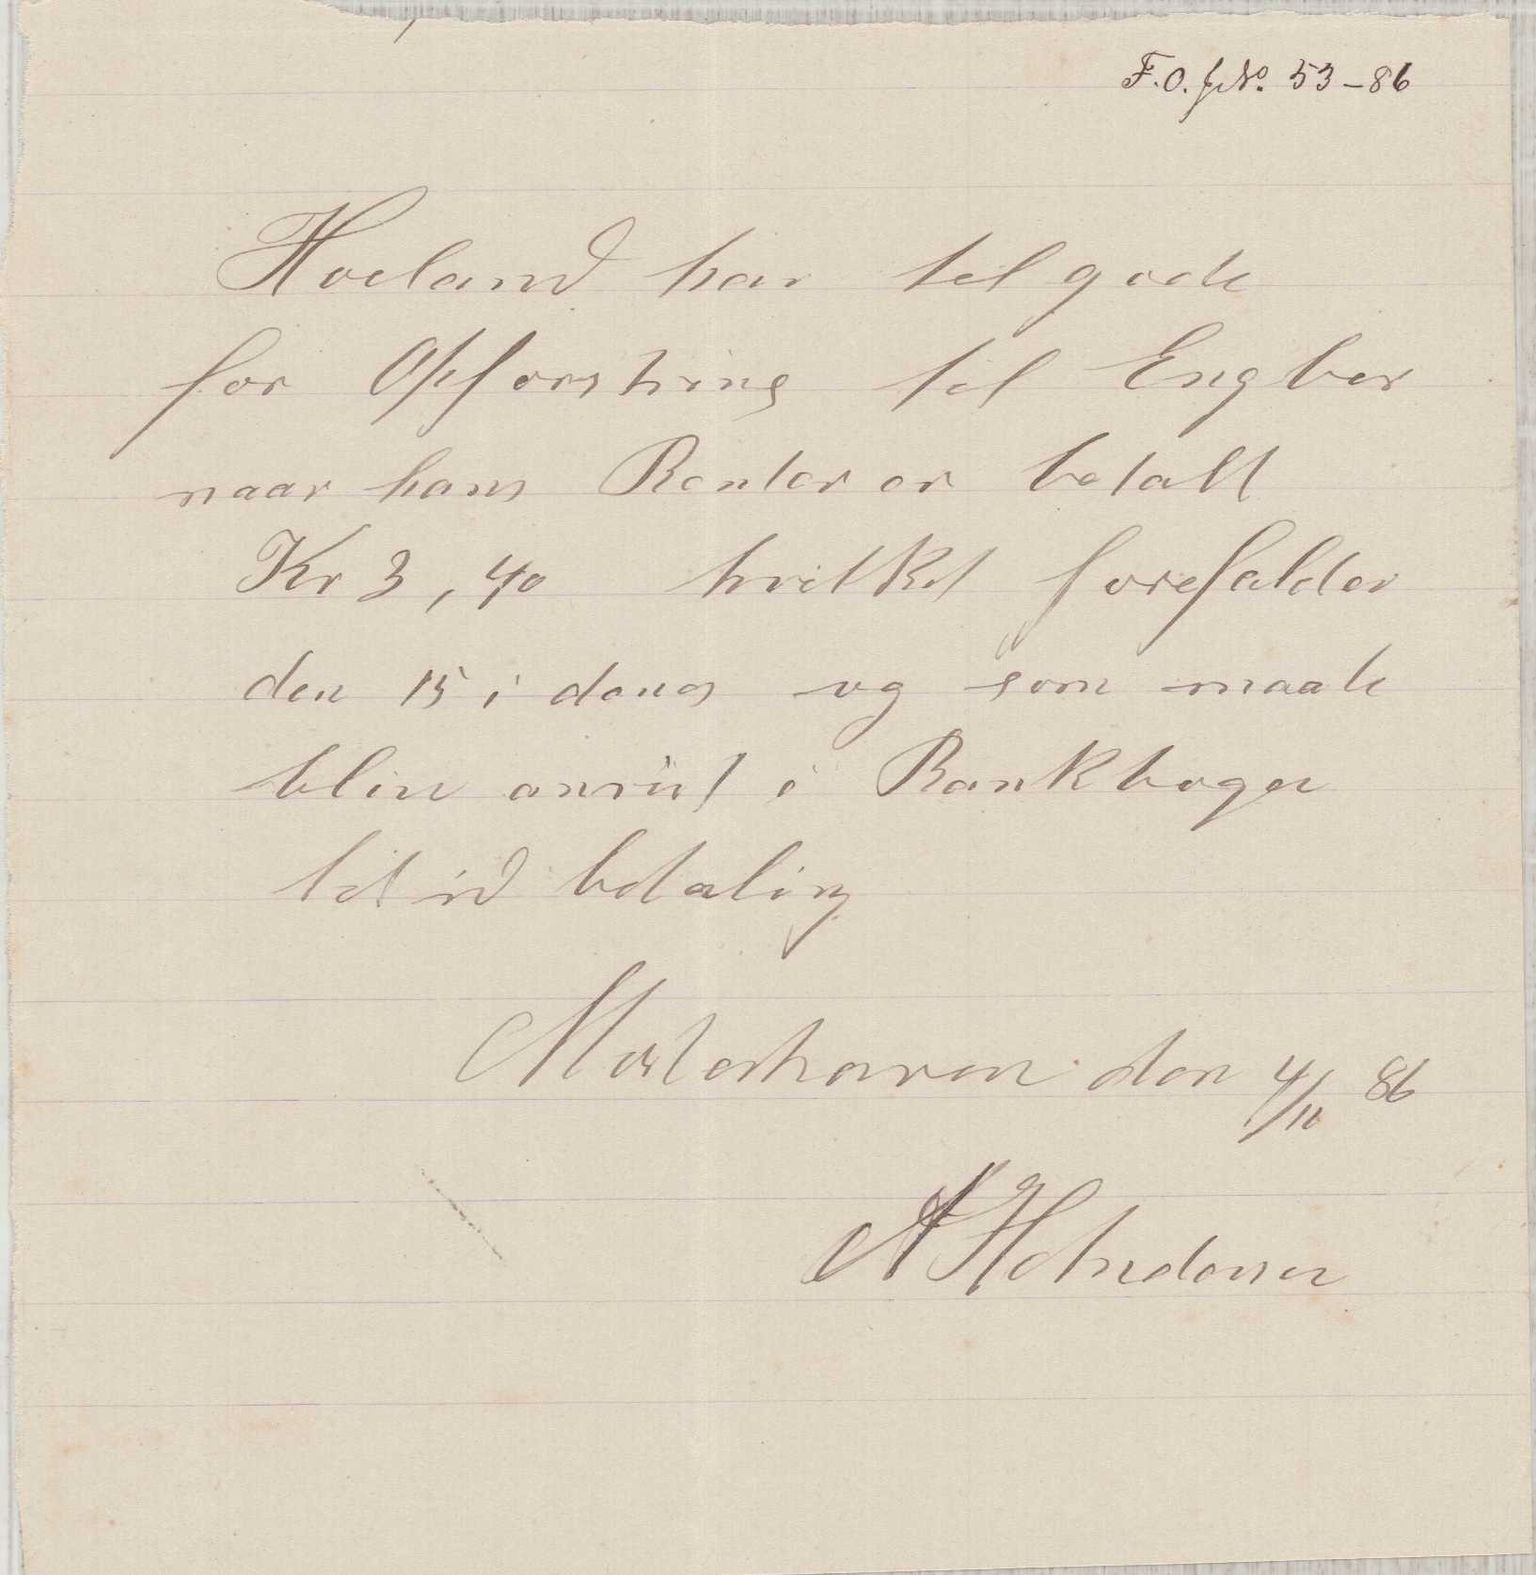 F.O. J.No. 53-86
Hoeland har tel gode
for Opforstring tel Engber
naar hans Renter er betalt
Kr 3,40 hvilket forefalder
den 15 i dens og som maate
blive anviist i Bankbogen
tel betaling
den 4/10 86